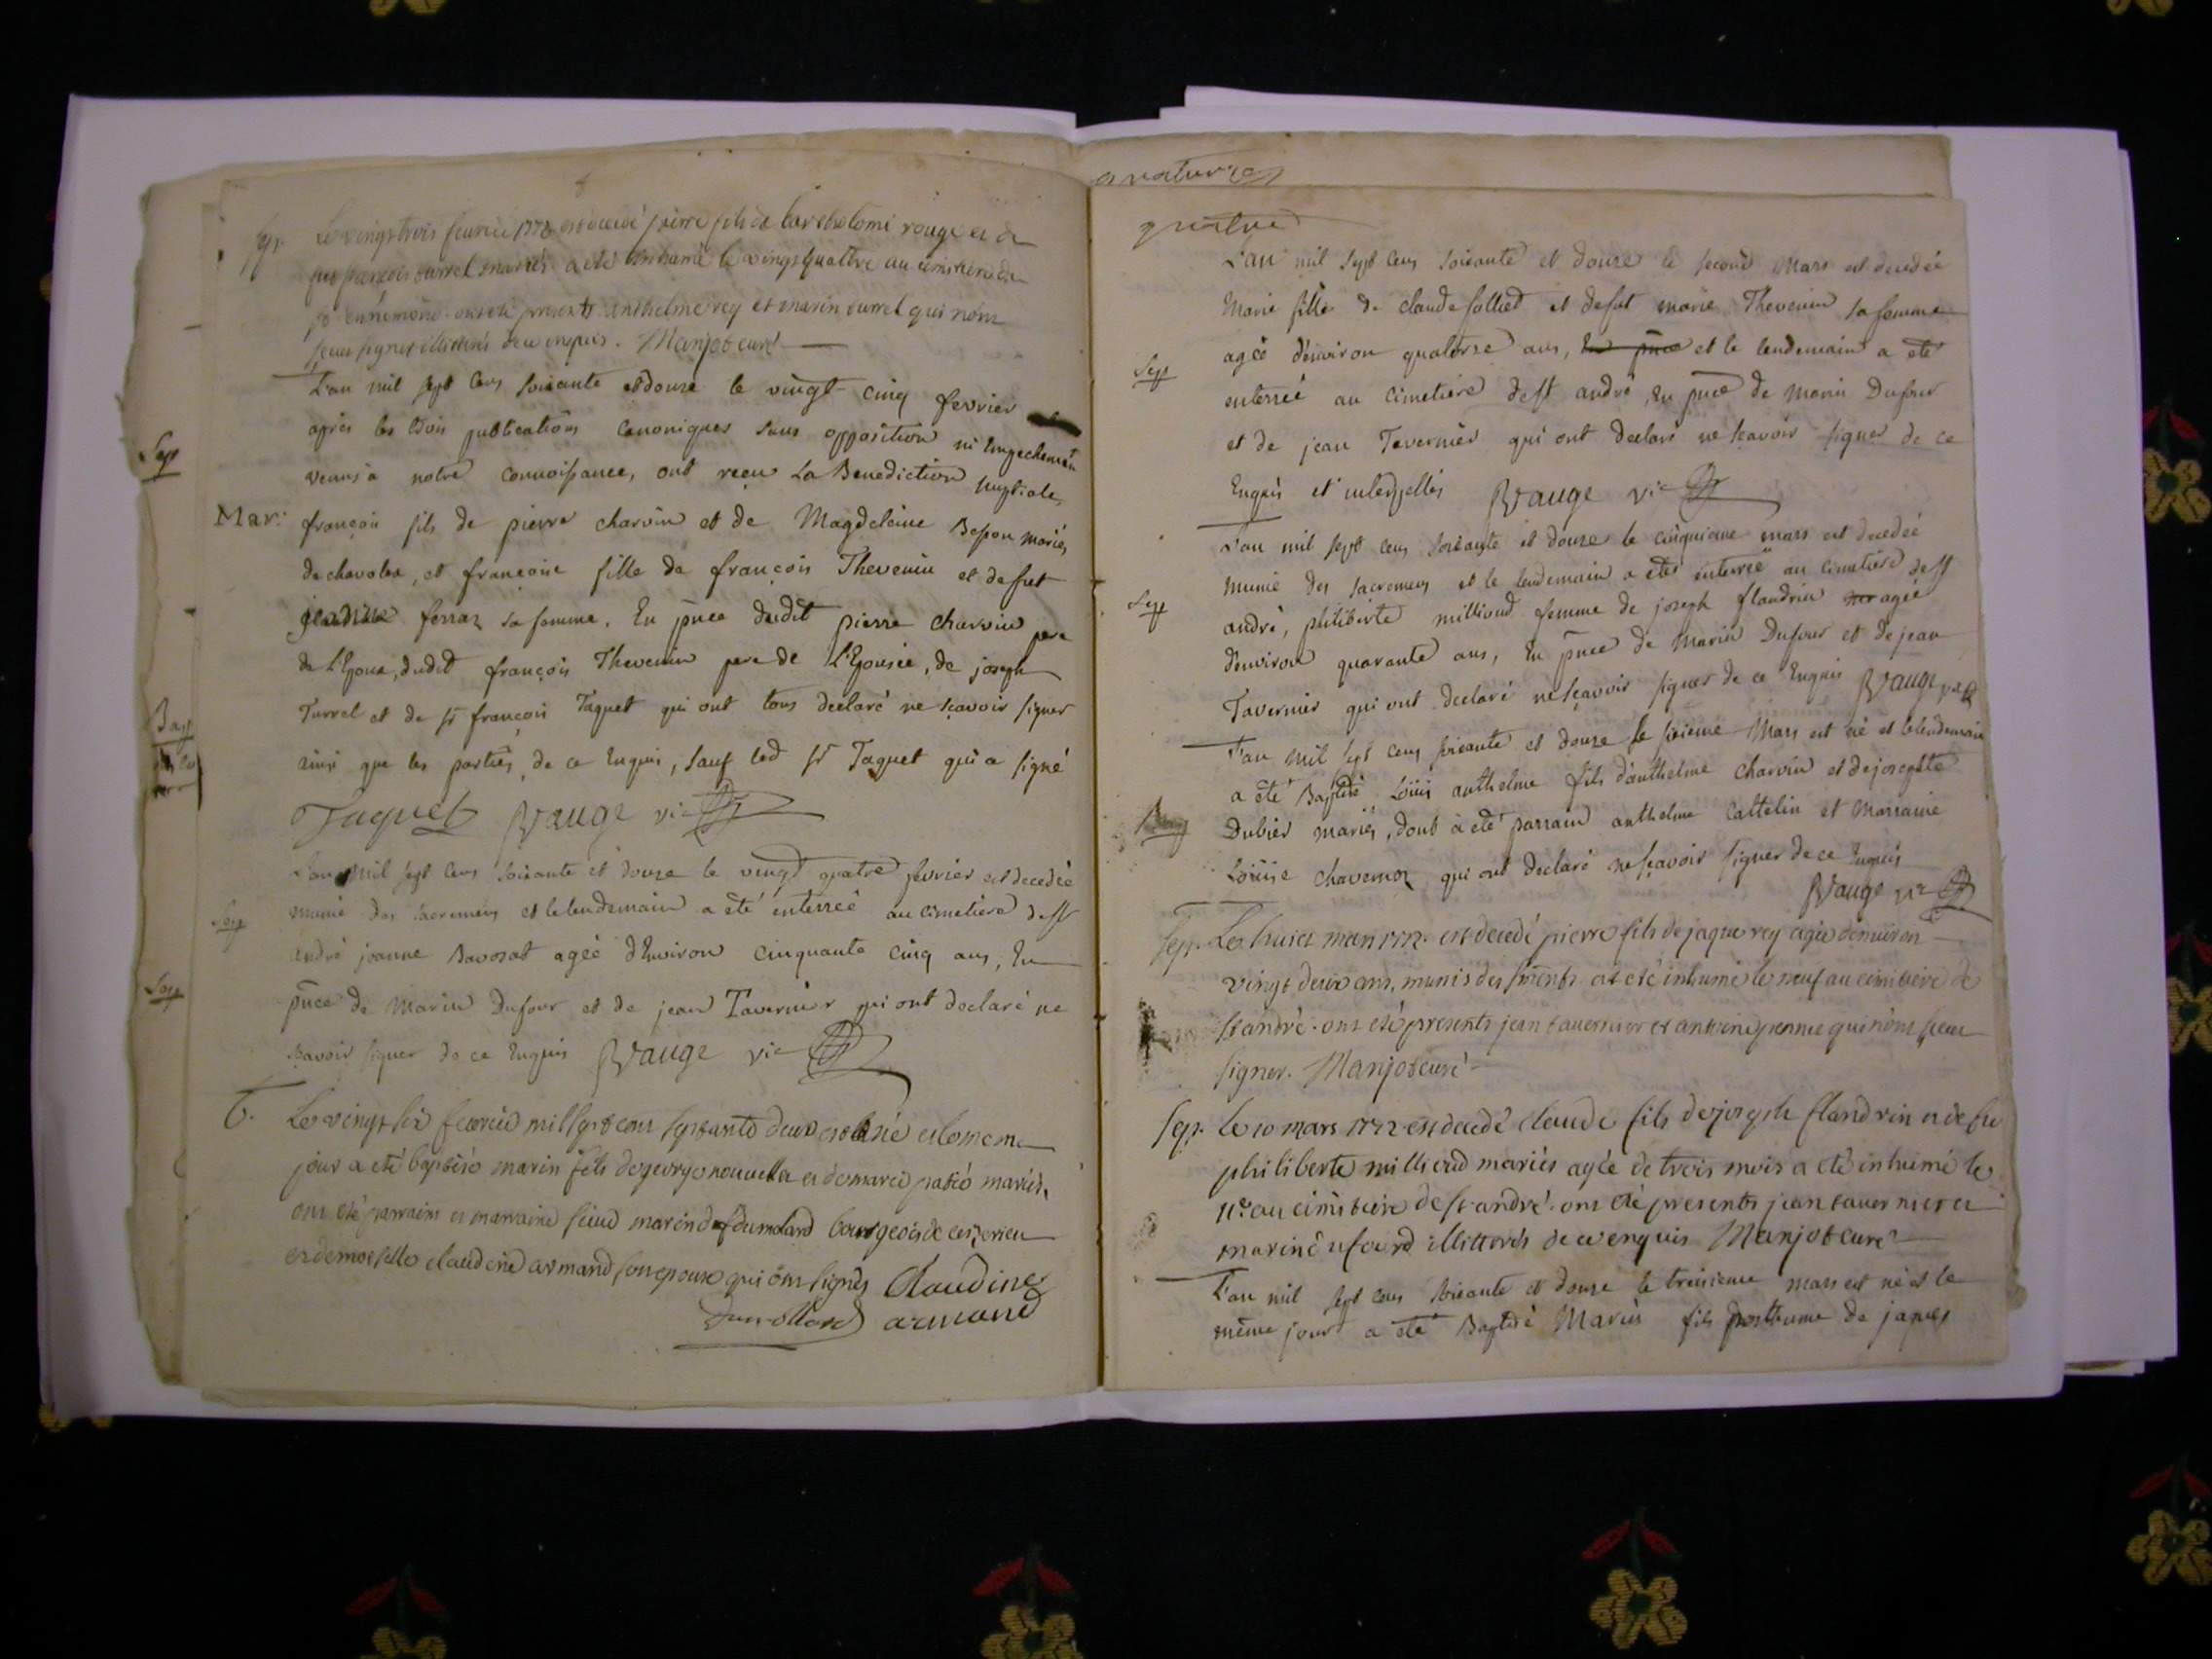 Sep. Le vingt trois fevrier 1772 est decedé pierre fils de barthelomi rouge et de
françois turrel mariés a été inhumé le vingt quattre au cimitiere de
st ennemond. ont été presents anthelme rey et marin turrel qui nont
sceu signer illitterés de ce enquis. Manjot curé
L'an mil sept cens soixante et douze le vingt cinq fevrier
après les trois publications canoniques sans opposition ni empechement
venus à notre connoissance, ont reçu La Benediction nuptiale,
Mar: françois fils de pierre charvin et de Magdeleine Besson mariés
de chavolex, et françoise fille de françois Thevenin et defut
ferraz sa femme. En pnce dudit pierre charvin pere
de L'Epoux, dudit françois Thevenin pere de L'Epousée, de joseph
Turrel et de sr françois Taquet qui ont tous declaré ne scavoir signer
ainsi que les parties, de ce Enquis, sauf led sr Taquet qui a signé
Taquet Vauge vic
L'an mil sept cens soixante et douze le vingt quatre fevrier est decedée
Sep munie des sacremens et le lendemain a été enterrée au cimetiere de st
andré joanne Bavosat agée d'Environ cinquante cinq ans, En
pnce de Marin Dufour et de jean Tavernier qui ont declaré ne
scavoir signer de ce Enquis Vauge vic
b. Le vingt six fevrier mill sept cent septante deux est né et le meme
jour a été baptisé marin fils de george nouvelle et de marie patió mariés,
ont été parrains et marraine sieud marin dufdumolard bourgeois de ceyzerieu
et demoiselle claudine armand son epouse qui ont signés Claudine
Dumollard armand
quatre
L'an mil sept cens soixante et douze le second Mars est decedée
Marie fille de claude folliet et defut marie Thevenin sa femme
Sep agée d'environ quatorze ans, En pnce et le lendemain a été
enterrée au cimetiere de st andré, En pnce de Marin Dufour
et de jean Tavernier qui ont declaré ne scavoir signer de ce
Enquis et interpellés Vauge vic
L'an mil sept cens soixante et douze le cinquieme mars est decedée
munie des sacremens et le lendemain a été enterrée au cimetiere de st
Sep andré, philiberte milliond femme de joseph flandrin agée
d'environ quarante ans, En pnce de Marin Dufour et de jean
Tavernier qui ont declaré ne scavoir signer de ce Enquis Vauge vic
L'an mil sept cens soixante et douze le sixieme Mars est né et le lendemain
a été Baptisé Loüis anthelme fils d'anthelme charvin et de josephte
Bap Dubier mariés, dont a été parrain anthelme Cattelin et Marraine
Loüise chavernoz qui ont declaré ne scavoir signer de ce Enquis
Vauge vic
Sep. Le huict mars 1772. est decedé pierre fils de jaque rey agée denviron
vingt deux ans, munis des sments at eté inhumé le neuf au cimitiere de
st andré. ont eté presents jean tavernier et antoine pennie qui nont sceu
signer. Manjot curé
Sep. Le 10 mars 1772 est decedé claude fils de joseph flandrin et de fu
philiberte milliond mariés agée de trois mois a eté inhumé le
11e au cimitiere de st andré. ont eté presents jean tavernier et
marin dufourd illitterés de ce enquis Manjot curé
L'an mil sept cens soixante et douze le treisieme mars est né et le
même jour a été Baptisé Mariès fils posthume de jaques